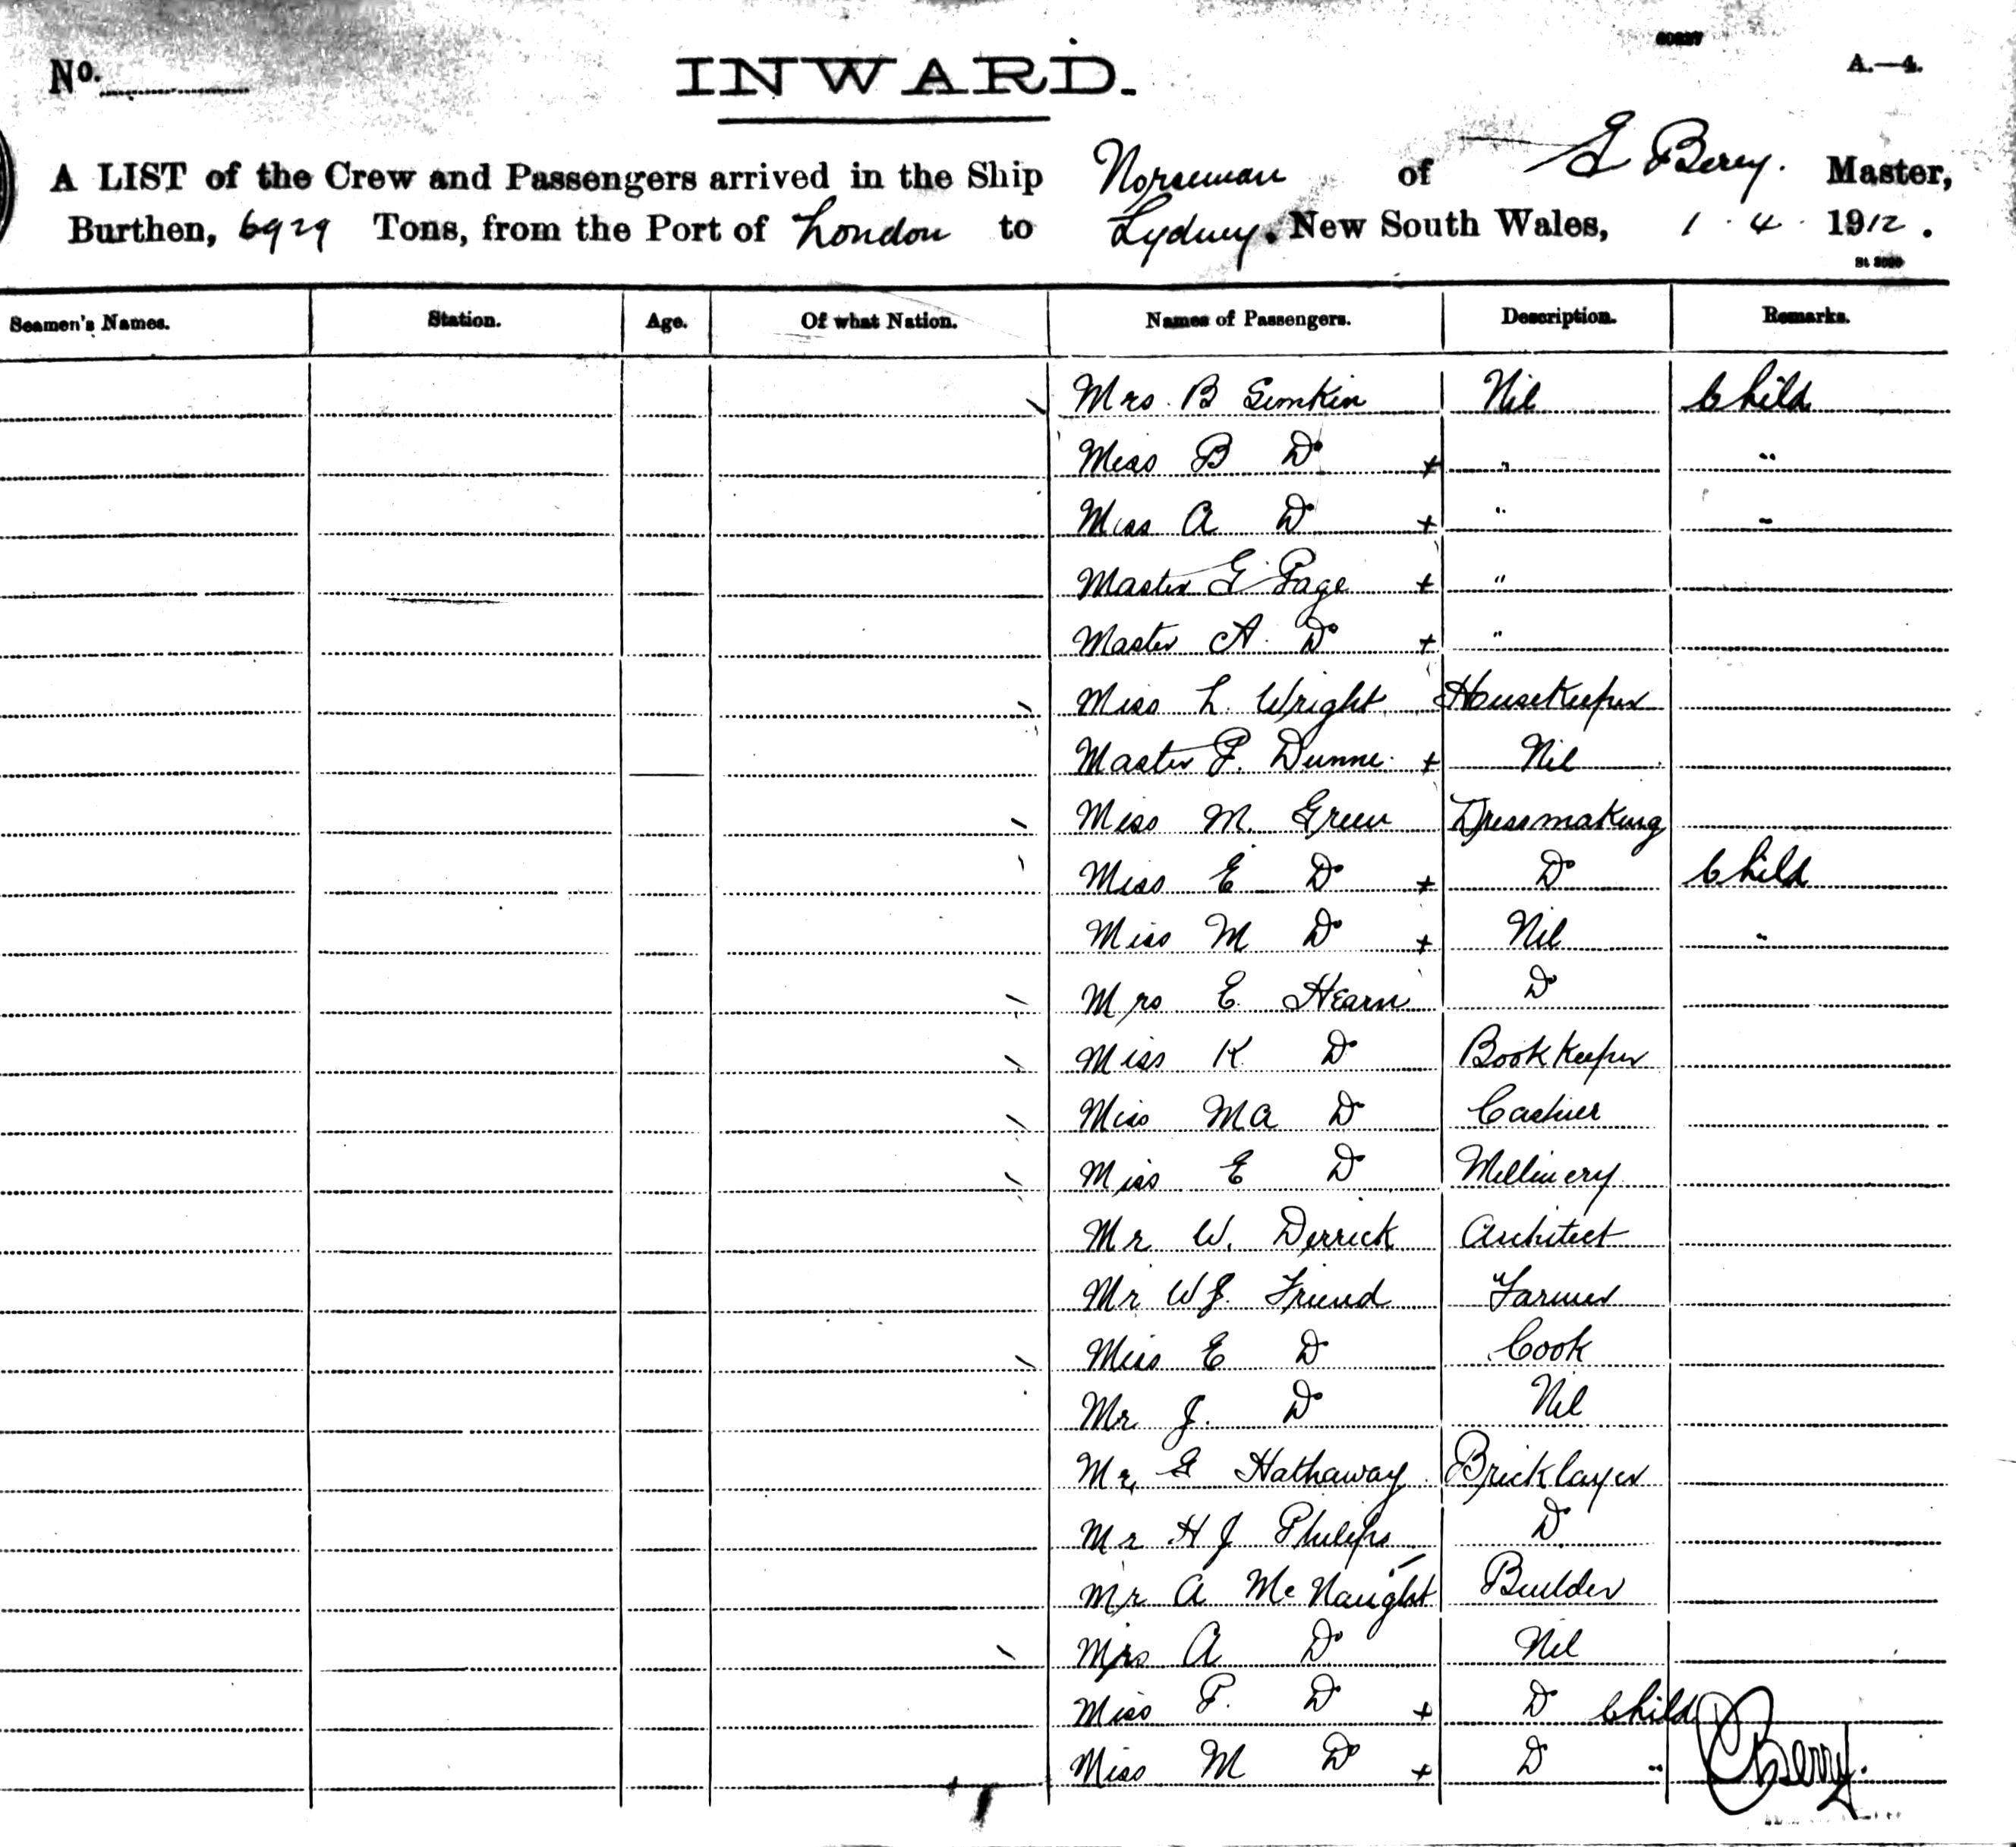 No.
INWARD.
A.—4.
A LIST of the Crew and Passengers arrived in the Ship Norseman of E Berry. Master,
Burthen, 6929 Tons, from the Port of London to Sydney, New South Wales, 1 . 4 . 1912.
Seamen's Names. Station. Age. Of what Nation. Names of Passengers. Description. Remarks.
Mrs. B Simkin Nil Child
Miss B Do + " "
Miss A Do + " "
Master G Page + "
Master A. Do + "
Miss L. Wright Housekeeper
Master P. Dunne + Nil
Miss M. Green Dressmaking
Miss E Do + Do Child
Miss M Do + Nil "
Mrs E. Hearn Do
Miss K Do Bookkeeper
Miss MA Do Cashier
Miss E Do Millinery
Mr W. Derrick Architect
Mr WJ. Friend Farmer
Miss E Do Cook
Mr J. Do Nil
Mr G Hathaway Bricklayer
Mr H J Philips Do
Mr A McNaught Builder
Mrs A Do Nil
Miss F. Do + Do Child
Miss M Do + Do "
Berry.